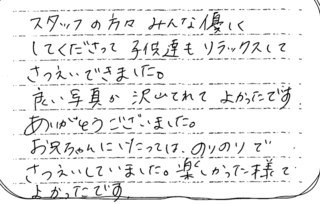 スタッフの方々 みんな優しく
してくださって 子供達も リラックスして
さつえいできました。
良い写真が 沢山とれて よかったです
ありがとうございました。
お兄ちゃんにいたっては、のりのりで
さつえいしていました。楽しかった様で
よかったです。